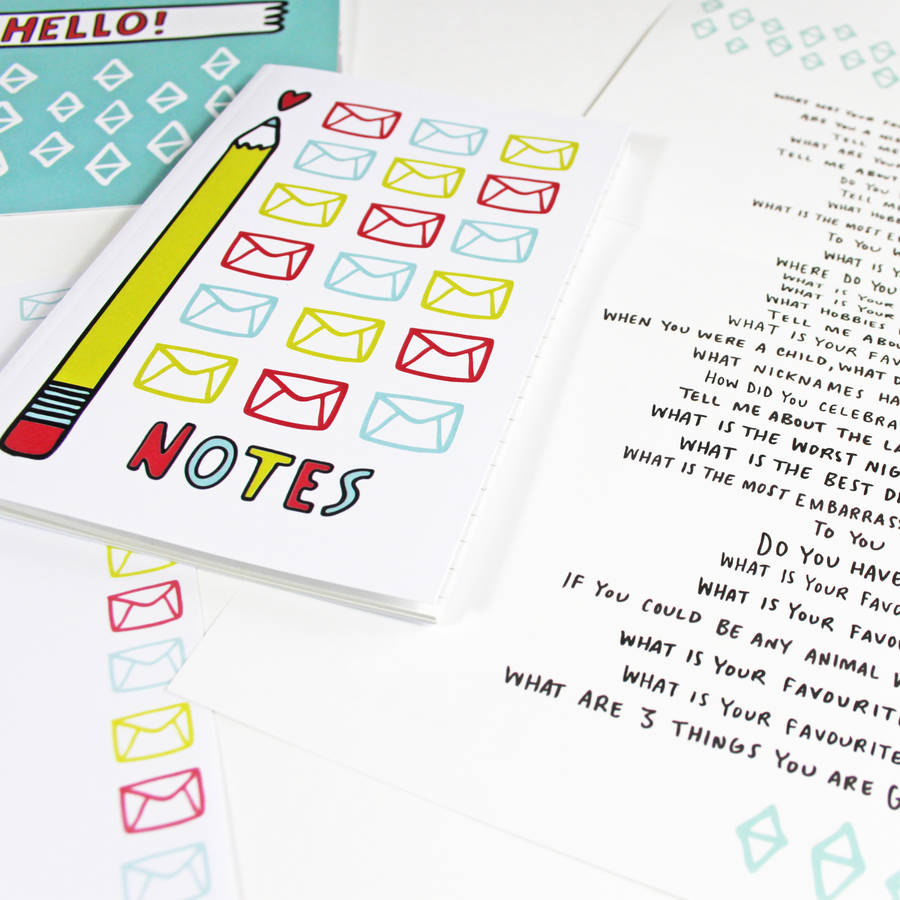 HELLO!
NOTES
WHAT ARE YOUR
ARE YOU A
TELL ME
WHAT ARE YOUR
TELL ME ABOUT
DO YOU
TELL ME
WHAT HOBBIES
WHAT IS THE MOST
TO YOU
WHAT IS
WHERE DO YOU
WHAT IS YOUR
WHAT IS YOUR
WHAT HOBBIES
TELL ME
WHAT IS YOUR
WHEN YOU WERE A CHILD, WHAT
WHAT NICKNAMES
HOW DID YOU
TELL ME ABOUT THE
WHAT IS THE WORST
WHAT IS THE BEST
WHAT IS THE MOST
TO YOU
DO YOU HAVE
WHAT IS YOUR
WHAT IS YOUR
IF YOU COULD BE ANY ANIMAL
WHAT IS YOUR FAVOURITE
WHAT IS YOUR FAVOURITE
WHAT ARE 3 THINGS YOU ARE